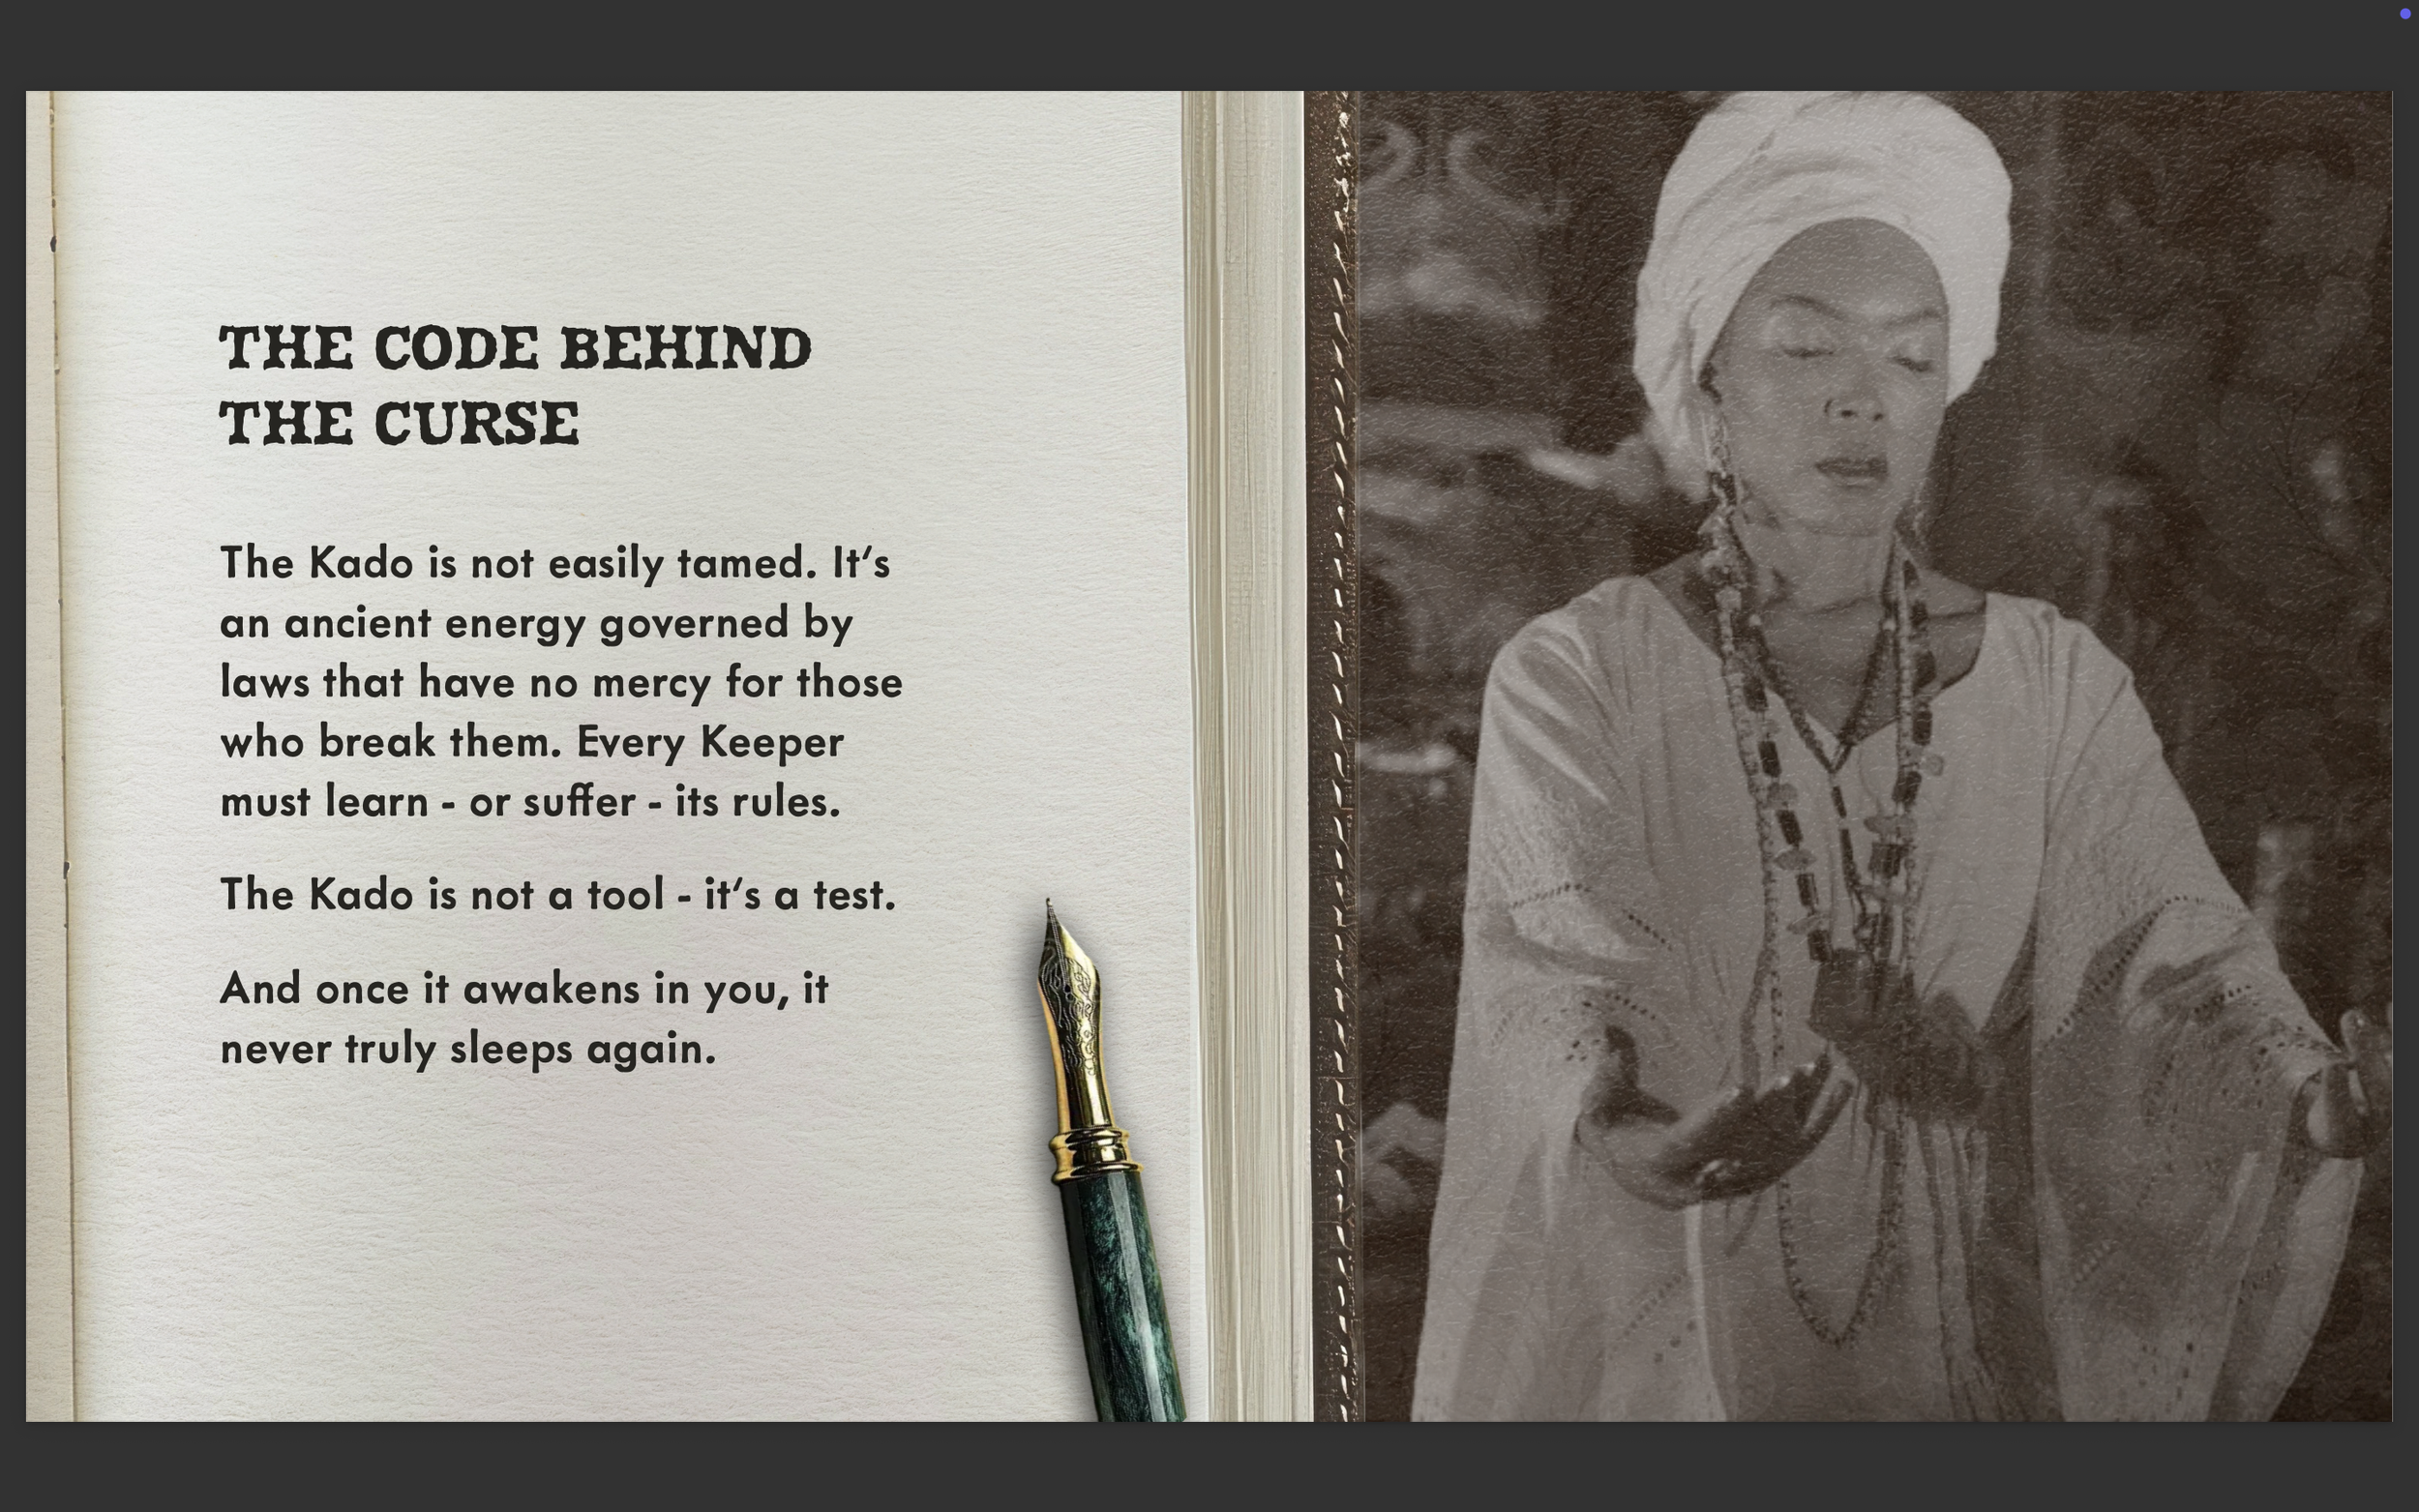 THE CODE BEHIND
THE CURSE
The Kado is not easily tamed. It‘s
an ancient energy governed by
laws that have no mercy for those
who break them. Every Keeper
must learn - or suffer - its rules.
The Kado is not a tool - it‘s a test.
And once it awakens in you, it
never truly sleeps again.